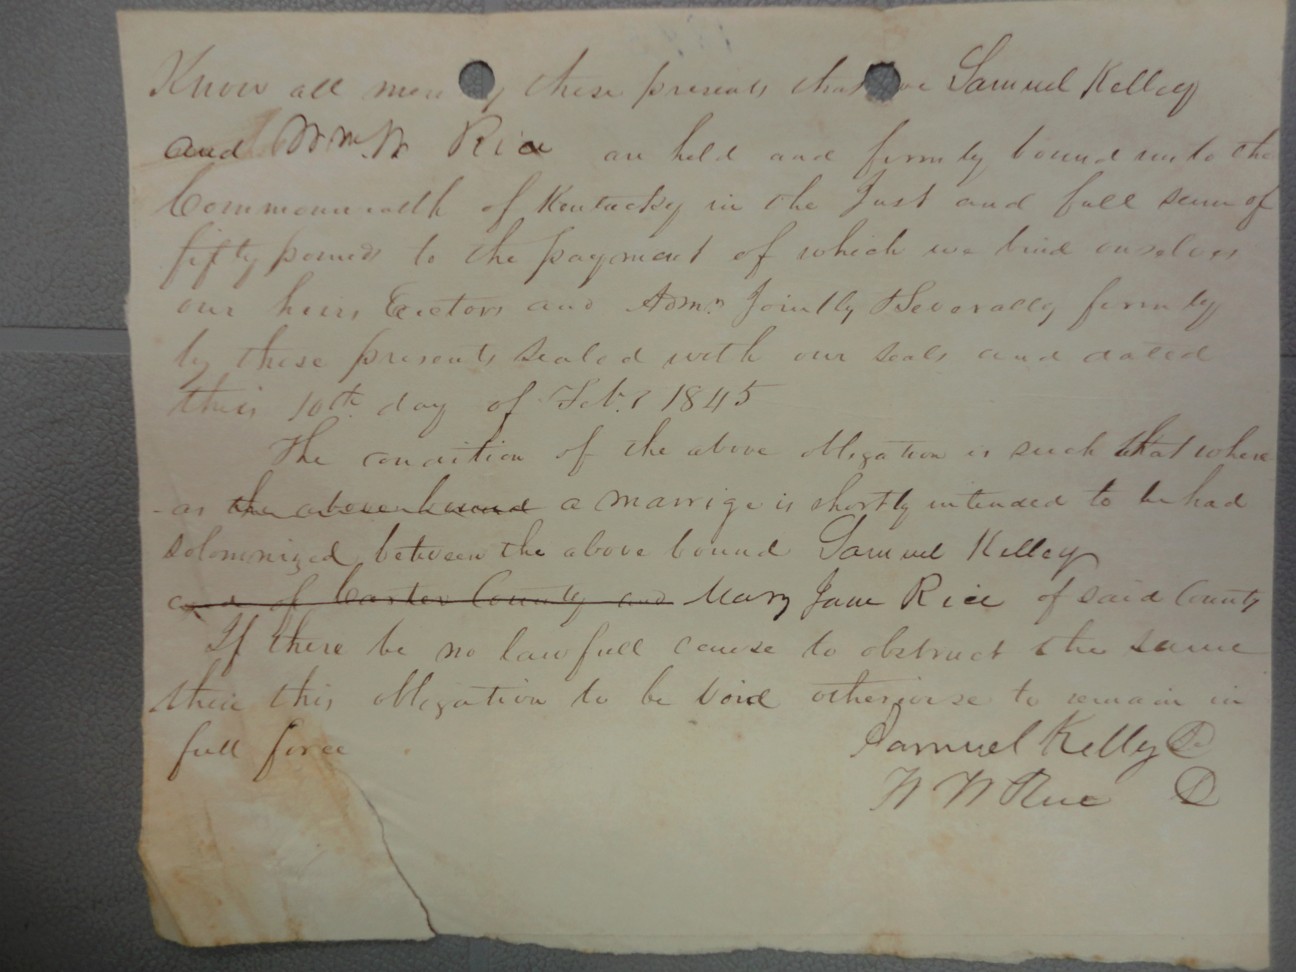 Know all men by these presents that we Samuel Kelley
and Wm. W Rice are held and firmly bound unto the
Commonwealth of Kentucky in the Just and full sum of
fifty pounds to the payment of which we bind ourselves
our heirs Exctors and Admrs Jointly & Severally firmly
by these presents sealed with our seals and dated
this 10th day of Feb. 1845
The condition of the above obligation is such that where
-as the above bound a marrige is shortly intended to be had
solomnized between the above bound Samuel Kelley
and of Carter County and Mary Jane Rice of said County
If there be no lawfull cause to obstruct the same
then this obligation to be void otherwise to remain in
full force
Samuel Kelly
W W Rice